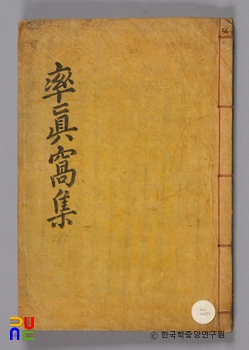 率眞窩集
54
PUNE
© 한국학중앙연구원